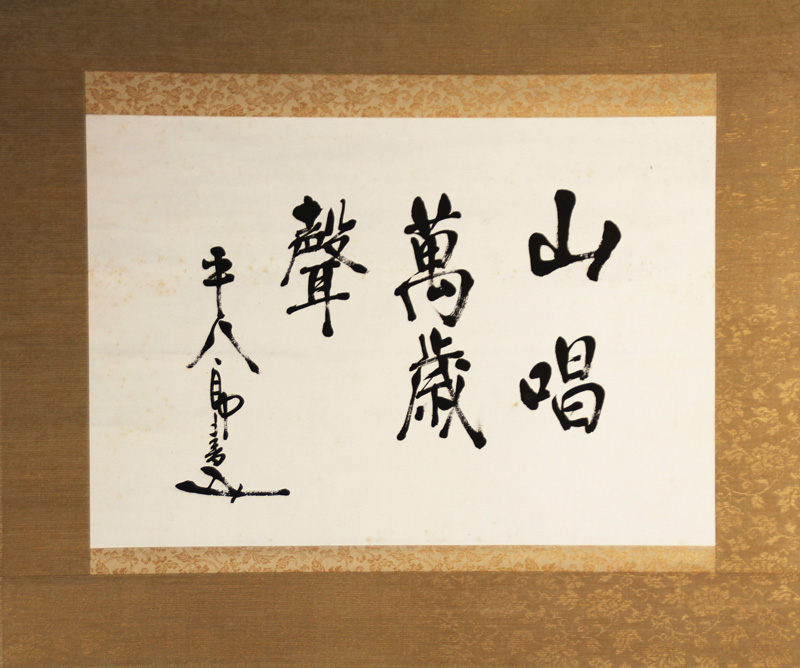 山唱
萬歳
聲
平八郎書